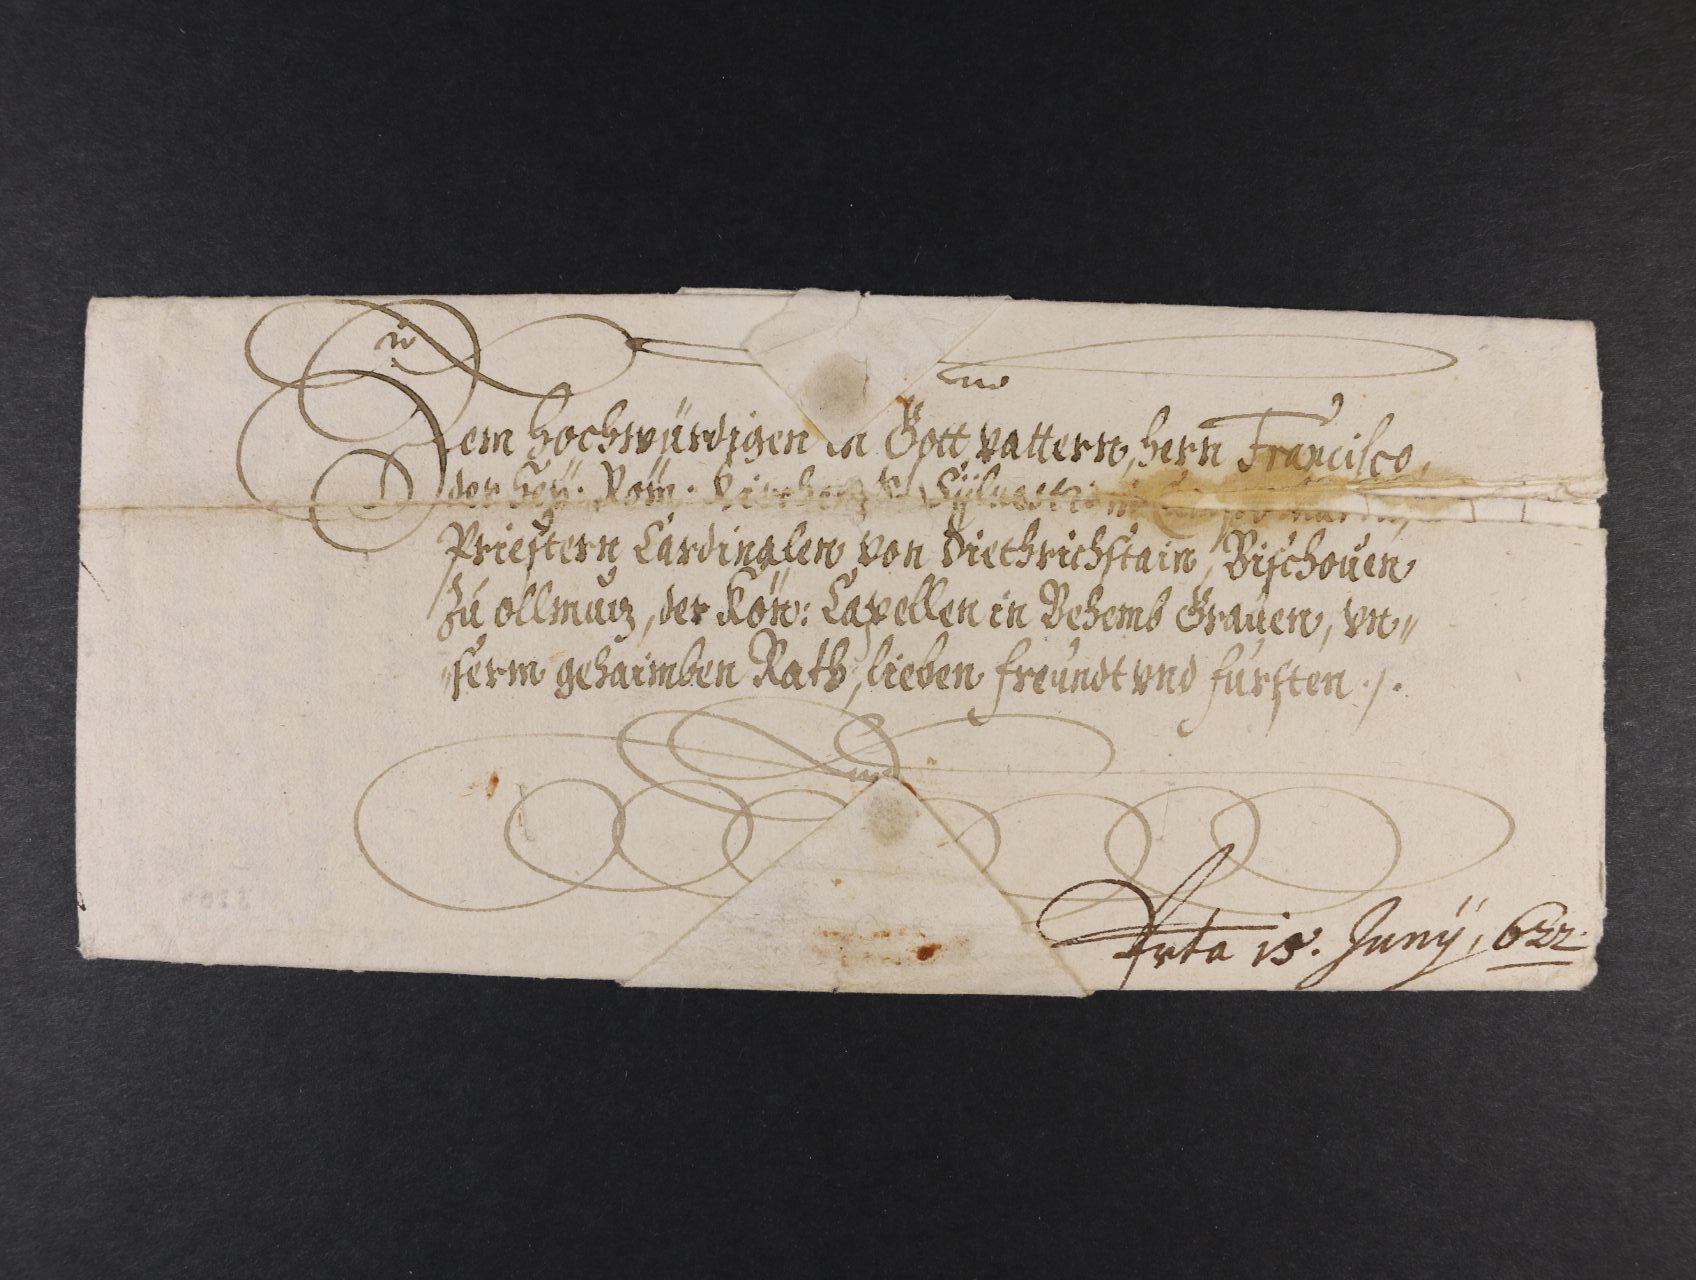 Dem Hochwürdigen in Gott vattern, hern Francisco,
der Hey: Röm: Kirchen Sÿluestri
Priestern Cardinalen von Diethrichstain, Bischouen
Zu ollmutz, der Kön: Capellen in Behemb Grauen, vn„
„serm gehaimben Rath, lieben freundt vnd fürsten ./.
15. Junÿ, 622.